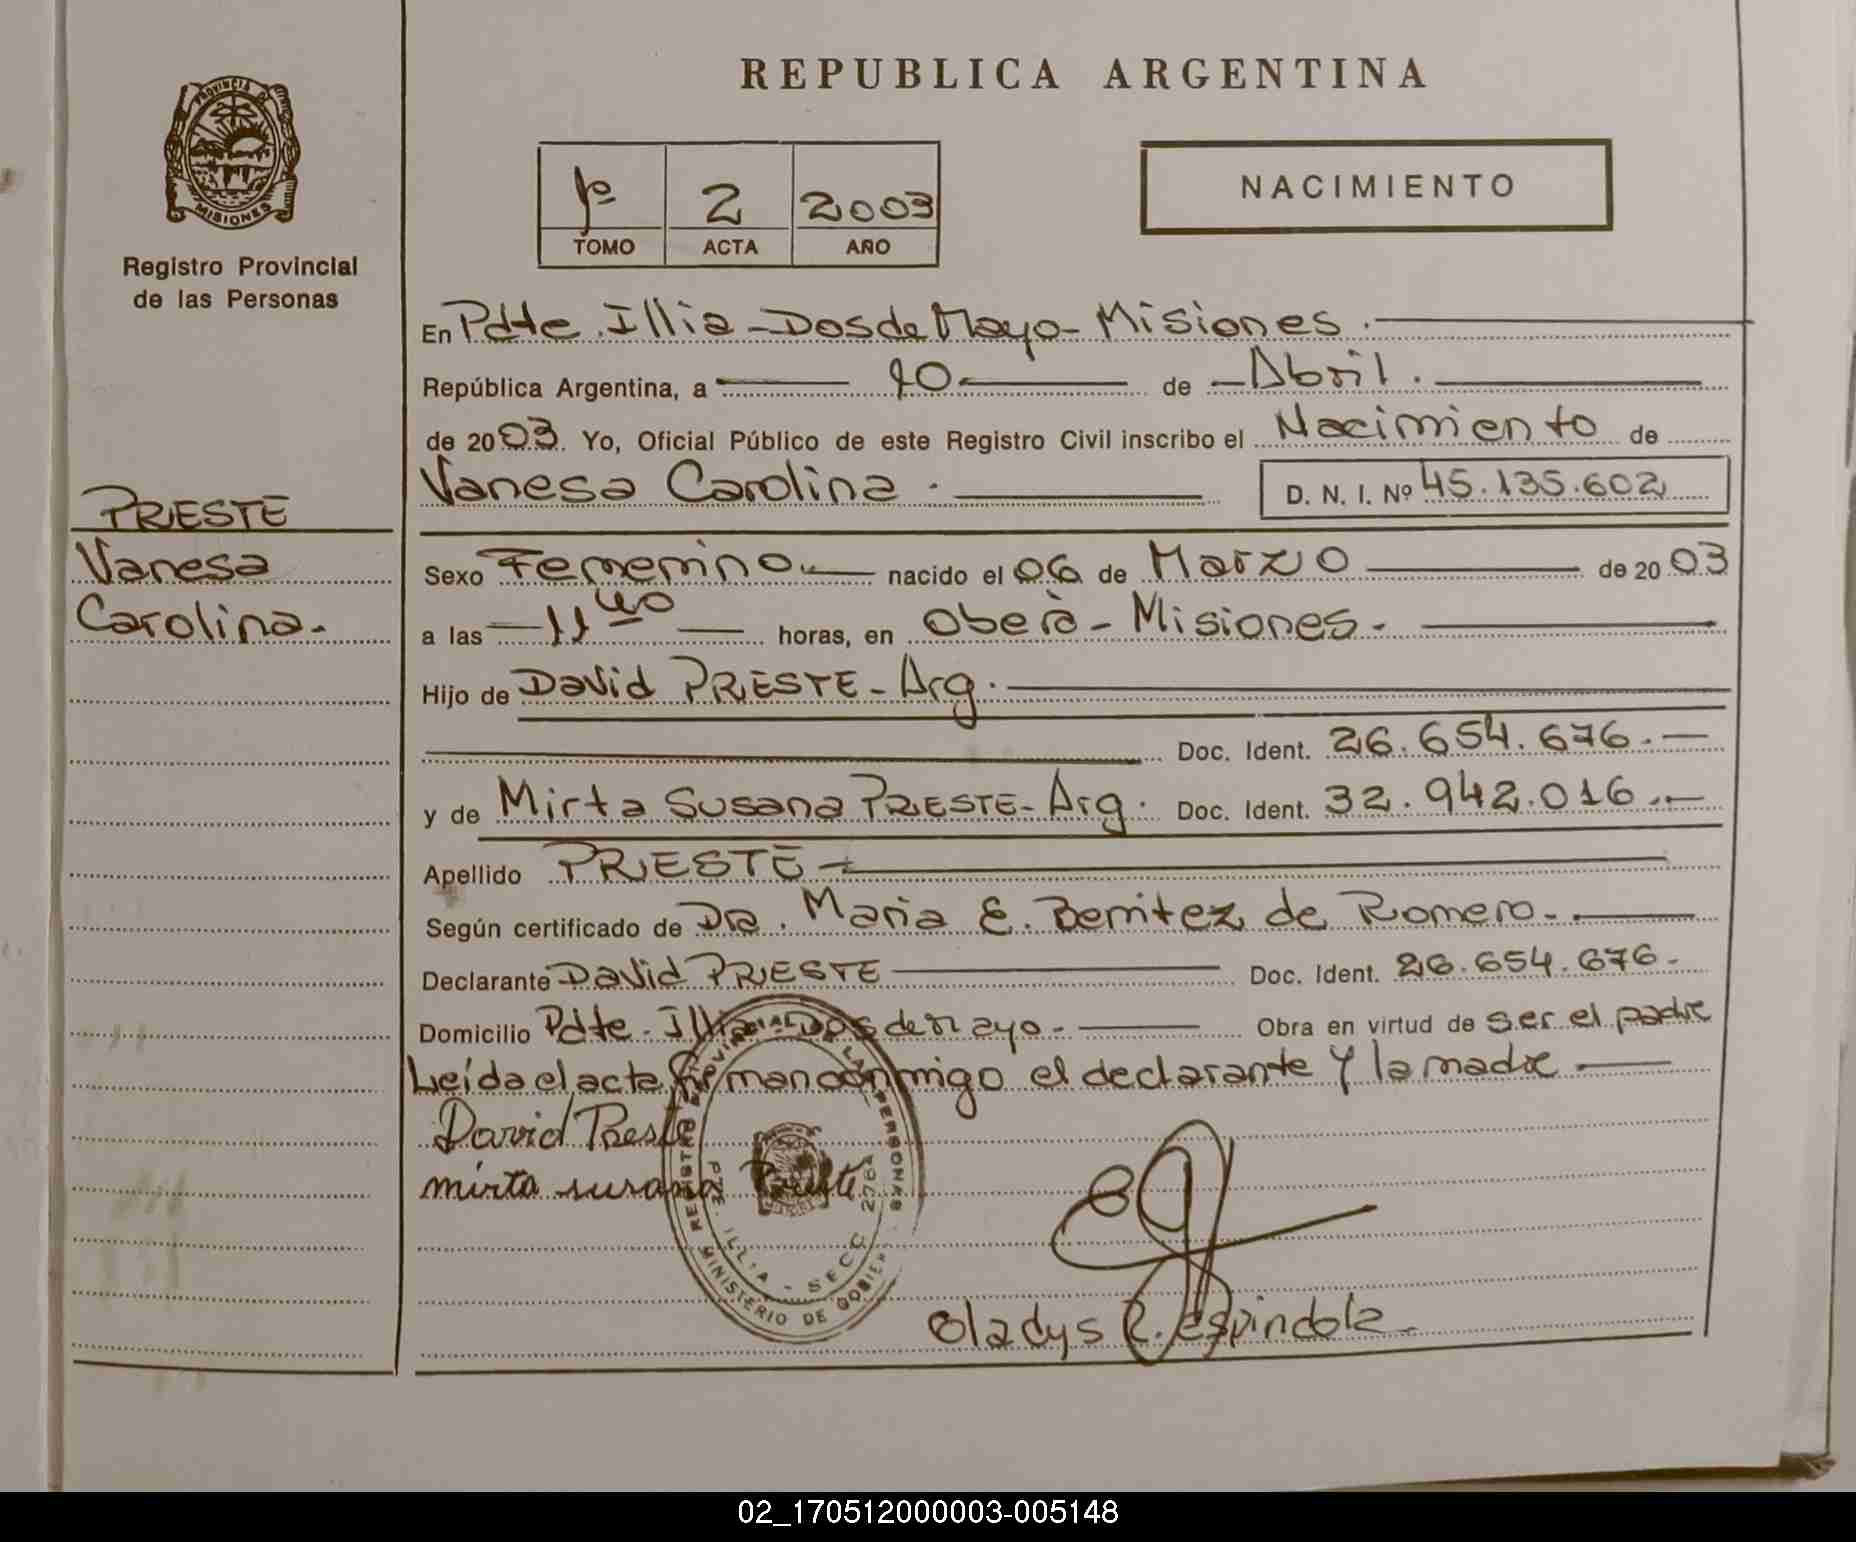 REPUBLICA ARGENTINA
PROVINCIA DE
MISIONES
Registro Provincial
de las Personas
1º 2 2003
TOMO ACTA AÑO
NACIMIENTO
En Pdte. Illia - Dos de Mayo - Misiones.
República Argentina, a 10 de Abril.
de 2003. Yo, Oficial Público de este Registro Civil inscribo el Nacimiento de
Vanesa Carolina. D. N. I. Nº 45.135.602
PRESTE
Vanesa
Carolina.
Sexo Femenino nacido el 06 de Marzo de 2003
a las 11 40 horas, en Oberà - Misiones.
Hijo de David PRESTE - Arg.
Doc. Ident. 26.654.676.
y de Mirta Susana PRESTE - Arg. Doc. Ident. 32.942.016.
Apellido PRESTE
Según certificado de Dra. Maria E. Benitez de Romero.
Declarante David PRESTE Doc. Ident. 26.654.676.
Domicilio Pdte. Illia - Dos de mayo. Obra en virtud de ser el padre
Leída el acta firman conmigo el declarante y la madre
David Preste
mirta susana Preste
REGISTRO PROVINCIAL DE LAS PERSONAS
PTE. ILLIA - SECC 2764
MINISTERIO DE GOBIER
Gladys R. Espindola
02_170512000003-005148